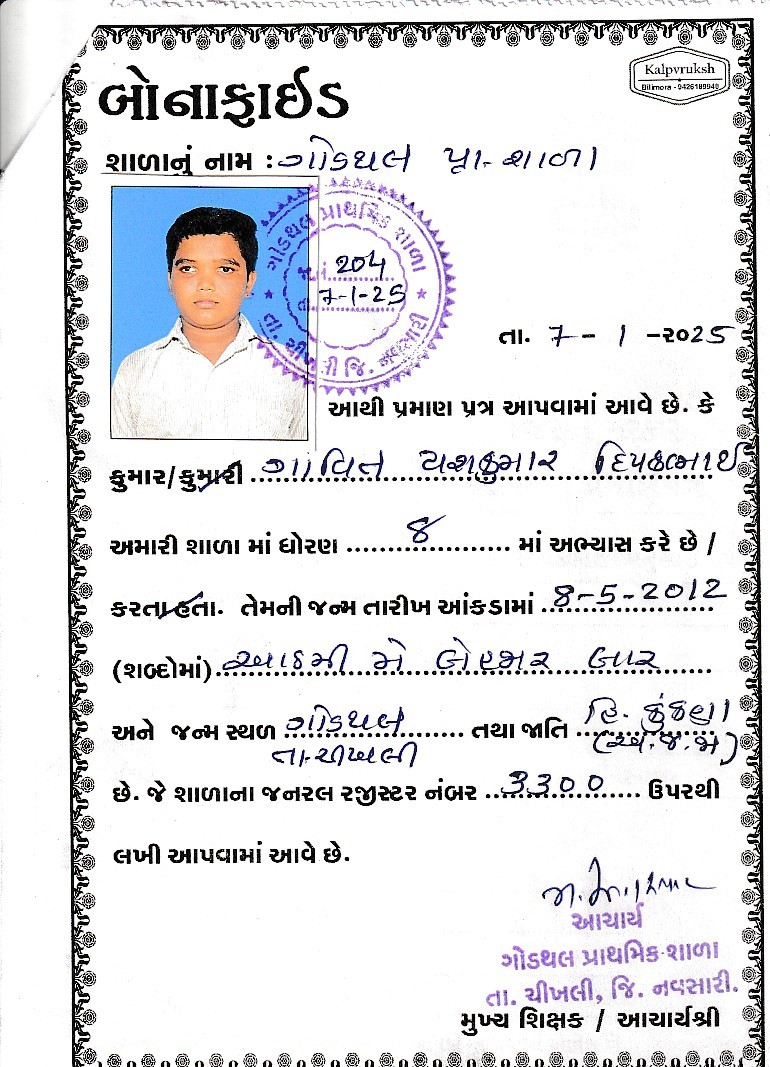 Kalpvruksh
Bilimora - 9426189949
બોનાફાઈડ
શાળાનું નામ : ગોડથલ પ્રા. શાળા
ગોડથલ પ્રાથમિક શાળા
204
તા. 7-1-25
તા. ચીખલી જિ. નવસારી
તા. 7 - 1 - ૨૦25
આથી પ્રમાણ પત્ર આપવામાં આવે છે. કે
કુમાર/કુમારી ગાવિત યશકુમાર દિપકભાઈ
અમારી શાળા માં ધોરણ ૮ માં અભ્યાસ કરે છે /
કરતા હતા. તેમની જન્મ તારીખ આંકડામાં 8-5-2012
(શબ્દોમાં) આઠમી મે બેહજાર બાર
અને જન્મ સ્થળ ગોડથલ તથા જાતિ હિ. કુંકણા
તા-ચીખલી (અ.જ.જા)
છે. જે શાળાના જનરલ રજીસ્ટર નંબર 3300 ઉપરથી
લખી આપવામાં આવે છે.
આચાર્ય
ગોડથલ પ્રાથમિક શાળા
તા. ચીખલી, જિ. નવસારી.
મુખ્ય શિક્ષક / આચાર્યશ્રી